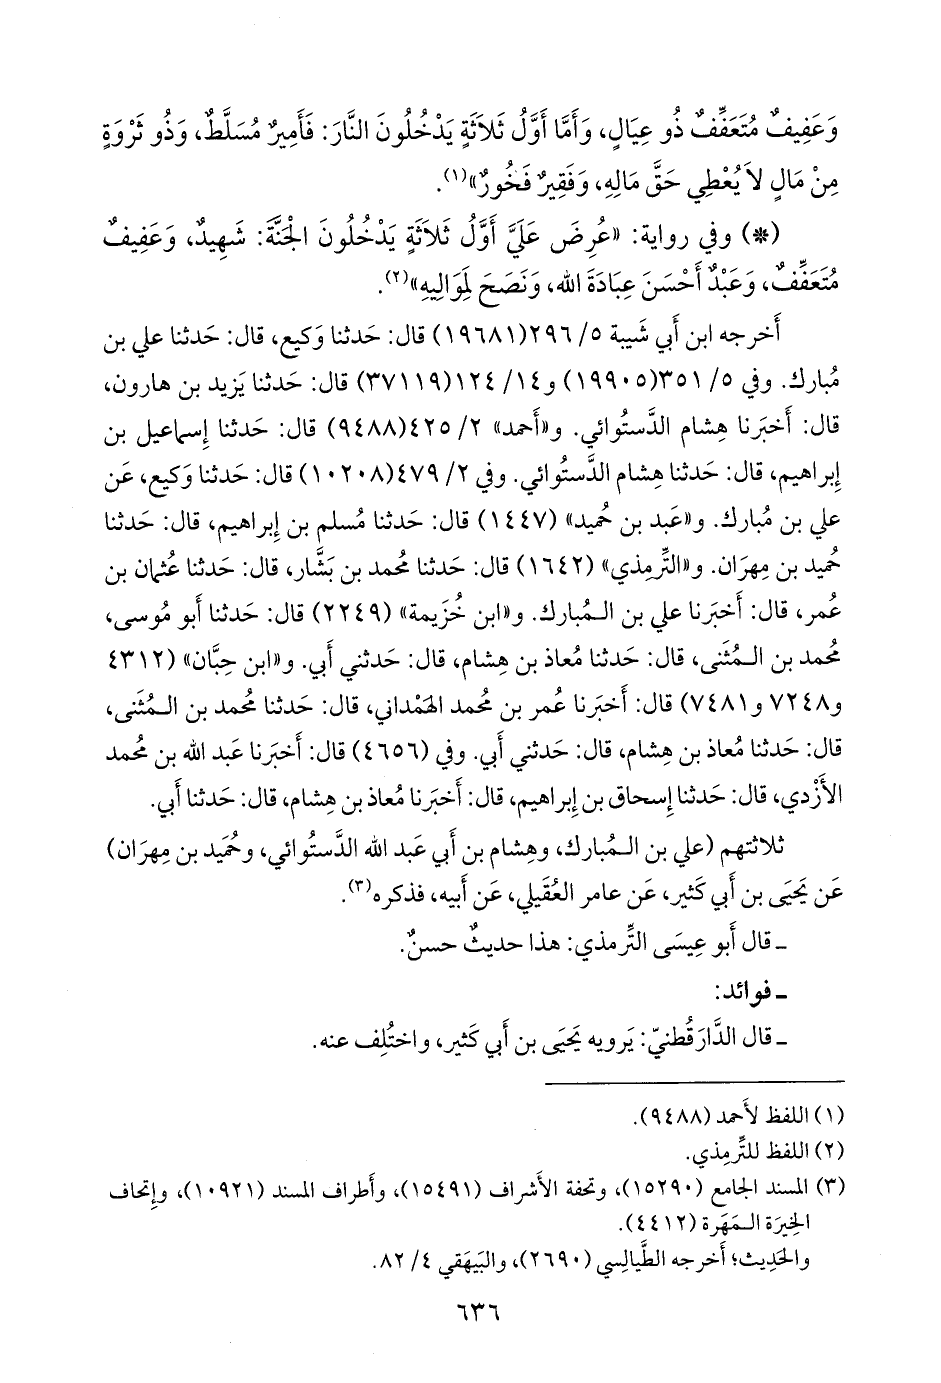 وَعَفِيفٌ مُتَعَفِّفٌ ذُو عِيَالٍ، وَأَمَّا أَوَّلُ ثَلاَثَةٍ يَدْخُلُونَ النَّارَ: فَأَمِيرٌ مُسَلَّطٌ، وَذُو ثَرْوَةٍ
مِنْ مَالٍ لاَ يُعْطِي حَقَّ مَالِهِ، وَفَقِيرٌ فَخُورٌ»(١).
(*) وفي رواية: «عُرِضَ عَلَيَّ أَوَّلُ ثَلاَثَةٍ يَدْخُلُونَ الْجَنَّةَ: شَهِيدٌ، وَعَفِيفٌ
مُتَعَفِّفٌ، وَعَبْدٌ أَحْسَنَ عِبَادَةَ الله، وَنَصَحَ لِمَوَالِيهِ»(٢).
أَخرجه ابن أَبي شَيبة ٥/ ٢٩٦(١٩٦٨١) قال: حَدثنا وَكيع، قال: حَدثنا علي بن
مُبارك. وفي ٥/ ٣٥١(١٩٩٠٥) و١٤/ ١٢٤(٣٧١١٩) قال: حَدثنا يَزيد بن هارون،
قال: أَخبَرنا هِشام الدَّستُوائي. و«أَحمد» ٢/ ٤٢٥(٩٤٨٨) قال: حَدثنا إِسماعيل بن
إِبراهيم، قال: حَدثنا هِشام الدَّستُوائي. وفي ٢/ ٤٧٩(١٠٢٠٨) قال: حَدثنا وَكيع، عَن
علي بن مُبارك. و«عَبد بن حُميد» (١٤٤٧) قال: حَدثنا مُسلم بن إِبراهيم، قال: حَدثنا
حُميد بن مِهرَان. و«التِّرمِذي» (١٦٤٢) قال: حَدثنا محُمد بن بَشَّار، قال: حَدثنا عُثمان بن
عُمر، قال: أَخبَرنا علي بن الـمُبارك. و«ابن خُزَيمة» (٢٢٤٩) قال: حَدثنا أَبو مُوسى،
مُحمد بن الـمُثَنى، قال: حَدثنا مُعاذ بن هِشام، قال: حَدثني أَبي. و«ابن حِبَّان» (٤٣١٢
و٧٢٤٨ و٧٤٨١) قال: أَخبَرنا عُمر بن مُحمد الهَمْداني، قال: حَدثنا مُحمد بن الـمُثَنى،
قال: حَدثنا مُعاذ بن هِشام، قال: حَدثني أَبي. وفي (٤٦٥٦) قال: أَخبَرنا عَبد الله بن مُحمد
الأَزْدي، قال: حَدثنا إِسحاق بن إِبراهيم، قال: أَخبَرنا مُعاذ بن هِشام، قال: حَدثنا أَبي.
ثلاثتهم (علي بن الـمُبارك، وهِشام بن أَبي عَبد الله الدَّستُوائي، وحُمَيد بن مِهرَان)
عَن يَحيَى بن أَبي كَثير، عَن عامر العُقَيلي، عَن أَبيه، فذكره(٣).
ـ قال أَبو عِيسَى التِّرمذي: هذا حديثٌ حسنٌ.
ـ فوائد:
ـ قال الدَّارَقُطنيّ: يَرويه يَحيَى بن أَبي كَثير، واختُلِف عنه.
(١) اللفظ لأَحمد (٩٤٨٨).
(٢) اللفظ للتِّرمِذي.
(٣) المسند الجامع (١٥٢٩٠)، وتحفة الأَشراف (١٥٤٩١)، وأَطراف المسند (١٠٩٢١)، وإِتحاف
الخِيرَة الـمَهَرة (٤٤١٢).
والحَدِيث؛ أَخرجه الطَّيالِسي (٢٦٩٠)، والبَيهَقي ٤/ ٨٢.
٦٣٦